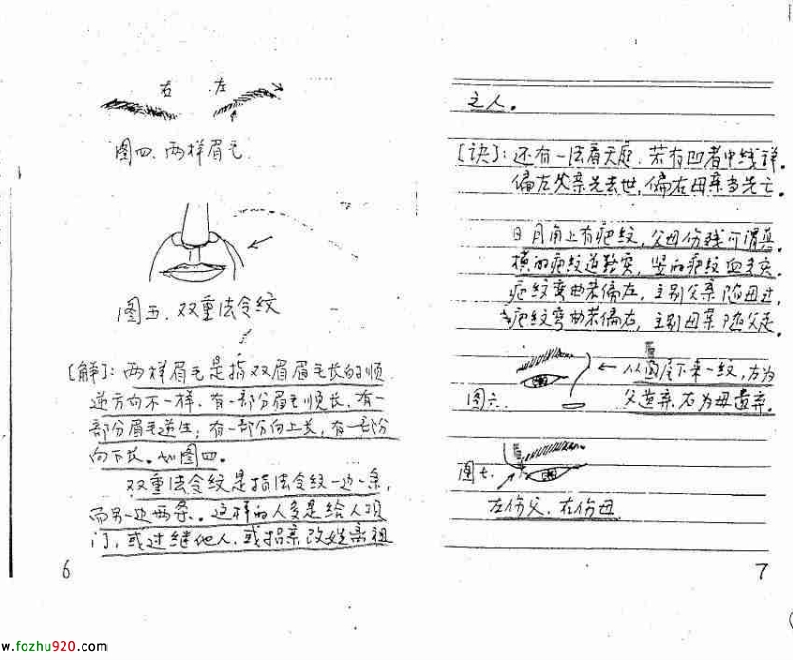 右 左
图四、两样眉毛
图五、双重法令纹
[解]：两样眉毛是指双眉眉毛长的顺
逆方向不一样，有一部分眉毛顺长，有一
部分眉毛逆生；有一部分向上长，有一部分
向下长。如图四。
双重法令纹是指法令纹一边一条，
而另一边两条。这样的人多是给人顶
门，或过继他人，或抬亲改姓离祖
6
之人。
[诀]：还有一法看天庭，若有凹者中线详。
偏左父亲先去世，偏右母亲当先亡。
日月角上有疤纹，父母伤残可谓真。
横的疤纹道数实，竖的疤纹血支实。
疤纹弯曲若偏左，主别父亲随母过，
疤纹弯曲若偏右，主别母亲随父走。
眉
← 从眉尾下来一纹，左为
图六、父遗弃，右为母遗弃。
眉
图七、
左伤父，右伤母
7
w.fozhu920.com